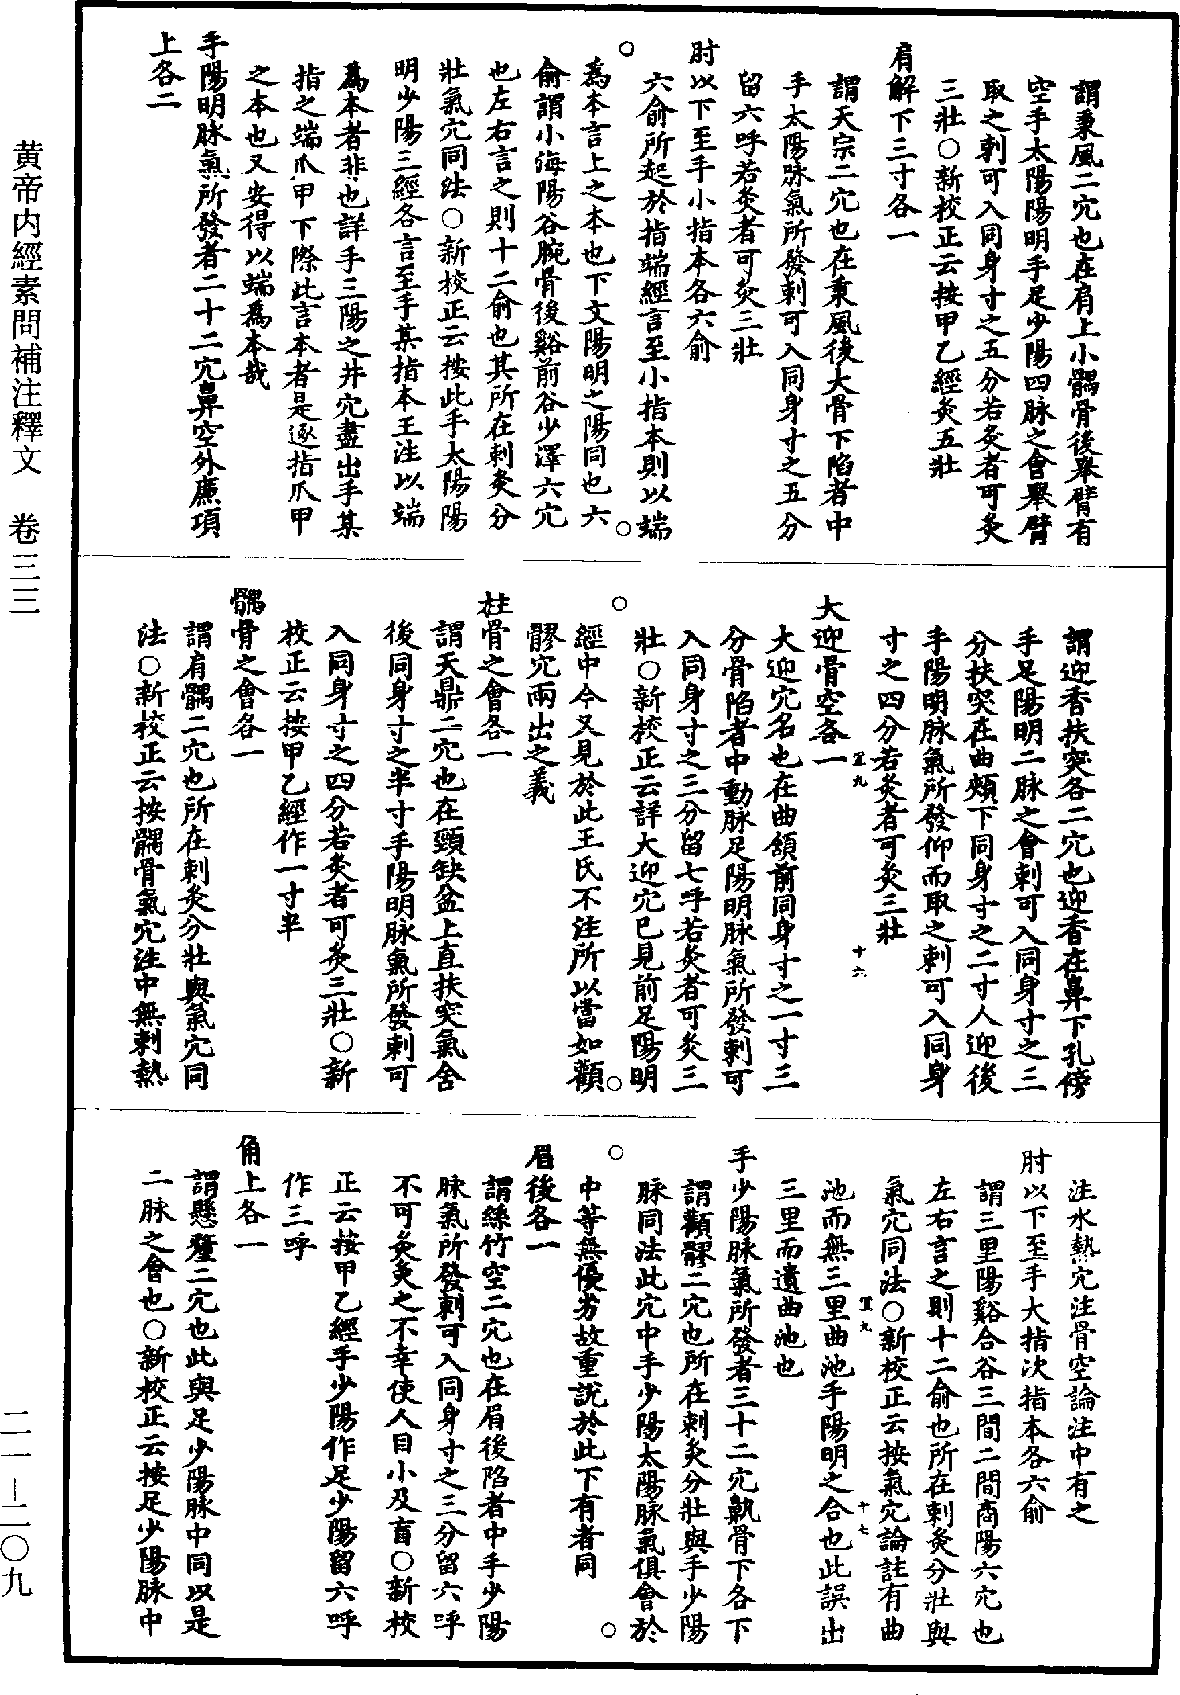 謂秉風二穴也在肩上小髃骨後舉臂有
空手太陽陽明手足少陽四脉之會舉臂
取之刺可入同身寸之五分若灸者可灸
三壯○新校正云按甲乙經灸五壯
肩解下三寸各一
謂天宗二穴也在秉風後大骨下陷者中
手太陽脉氣所發刺可入同身寸之五分
留六呼若灸者可灸三壯
肘以下至手小指本各六俞
六俞所起於指端經言至小指本則以端
為本言上之本也下文陽明之陽同也六
俞謂小海陽谷腕骨後谿前谷少澤六穴
也左右言之則十二俞也其所在刺灸分
壯氣穴同法○新校正云按此手太陽陽
明少陽三經各言至手某指本王注以端
為本者非也詳手三陽之井穴盡出手某
指之端爪甲下際此言本者是逐指爪甲
之本也又安得以端為本哉
手陽明脉氣所發者二十二穴鼻空外廉項
上各二
謂迎香扶突各二穴也迎香在鼻下孔傍
手足陽明二脉之會刺可入同身寸之三
分扶突在曲頰下同身寸之二寸人迎後
手陽明脉氣所發仰而取之刺可入同身
寸之四分若灸者可灸三壯
大迎骨空各一
大迎穴名也在曲頷前同身寸之一寸三
分骨陷者中動脉足陽明脉氣所發刺可
入同身寸之三分留七呼若灸者可灸三
壯○新校正云詳大迎穴已見前足陽明
經中今又見於此王氏不注所以當如顴
髎穴兩出之義
柱骨之會各一
謂天鼎二穴也在頸缺盆上直扶突氣舍
後同身寸之半寸手陽明脉氣所發刺可
入同身寸之四分若灸者可灸三壯○新
校正云按甲乙經作一寸半
髃骨之會各一
謂肩髃二穴也所在刺灸分壯與氣穴同
法○新校正云按髃骨氣穴注中無刺熱
注水熱穴注骨空論注中有之
肘以下至手大指次指本各六俞
謂三里陽谿合谷三間二間商陽六穴也
左右言之則十二俞也所在刺灸分壯與
氣穴同法○新校正云按氣穴論註有曲
池而無三里曲池手陽明之合也此誤出
三里而遺曲池也
手少陽脉氣所發者三十二穴鼽骨下各一
謂顴髎二穴也所在刺灸分壯與手少陽
脉同法此穴中手少陽太陽脉氣俱會於
中等無優劣故重說於此下有者同
眉後各一
謂絲竹空二穴也在眉後陷者中手少陽
脉氣所發刺可入同身寸之三分留六呼
不可灸灸之不幸使人目小及盲○新校
正云按甲乙經手少陽作足少陽留六呼
作三呼
角上各一
謂懸釐二穴也此與足少陽脉中同以是
二脉之會也○新校正云按足少陽脉中
黃帝内經素問補注釋文　卷三三
二一－二〇九